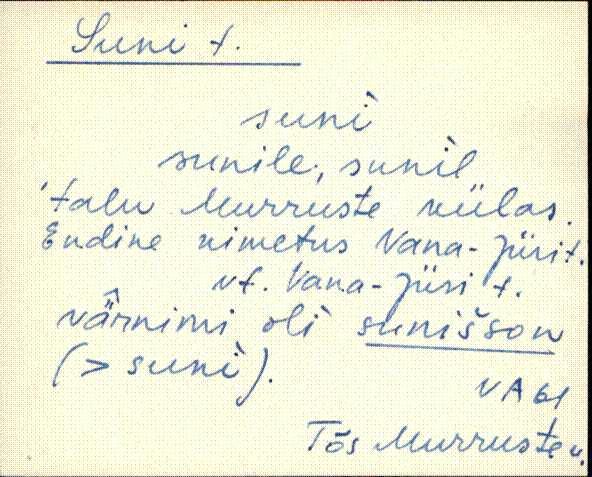 Suni t.
suni
sunile, sunil
talu Murruste külas.
Endine nimetus Vana-Jüri t.
vt. Vana-Jüri t.
värnimi oli sunišson
(> suni).
VA 61
Tõs Murruste k.